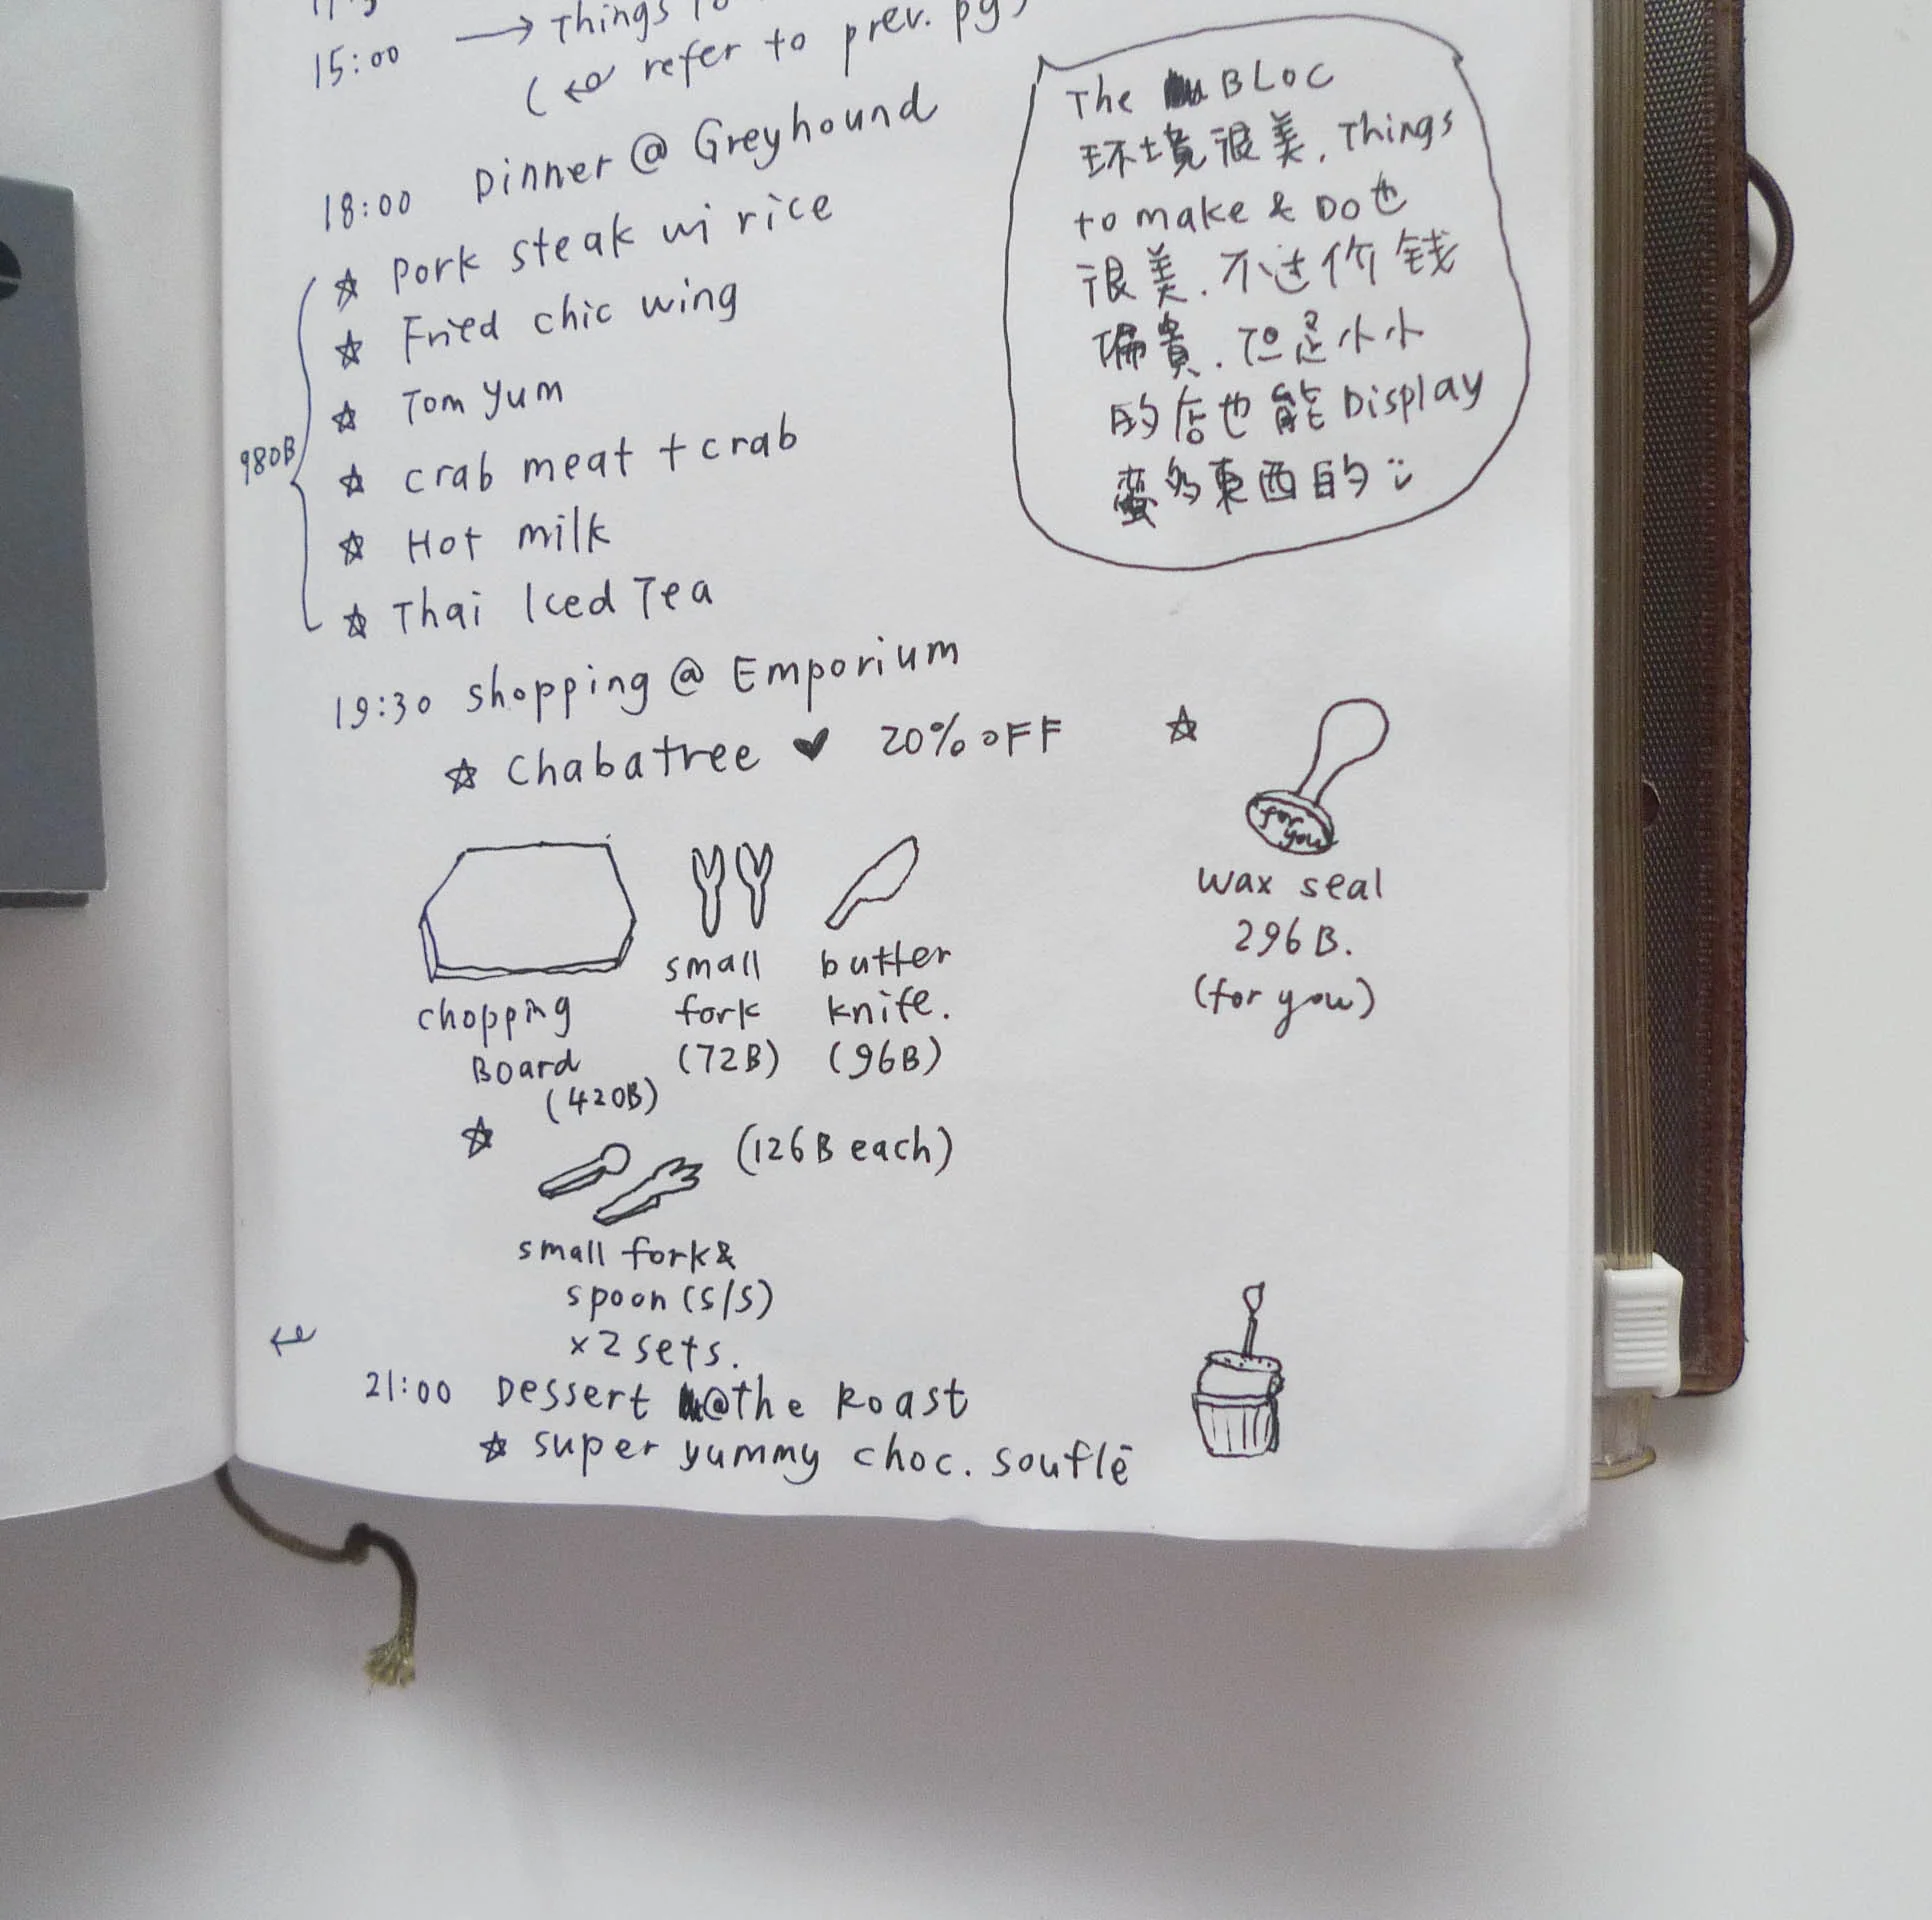 15:00 → Things
(↩ refer to prev. pg)
18:00 Dinner @ Greyhound
☆ Pork steak w/ rice
☆ Fried chic wing
☆ Tom Yum
☆ crab meat + crab
☆ Hot milk
☆ Thai Iced Tea
980B
The BLOC
环境很美, Things
to make & Do也
很美. 不过价钱
偏貴. 但是小小
的店也能Display
蛮多東西的 :)
19:30 shopping @ Emporium
☆ Chabatree ♥ 20% OFF
☆
for
you
wax seal
296B.
(for you)
chopping
Board
(420B)
small
fork
(72B)
butter
knife.
(96B)
☆ (126B each)
small fork &
spoon (S/S)
x 2 sets.
21:00 Dessert @the Roast
☆ super yummy choc. souflē